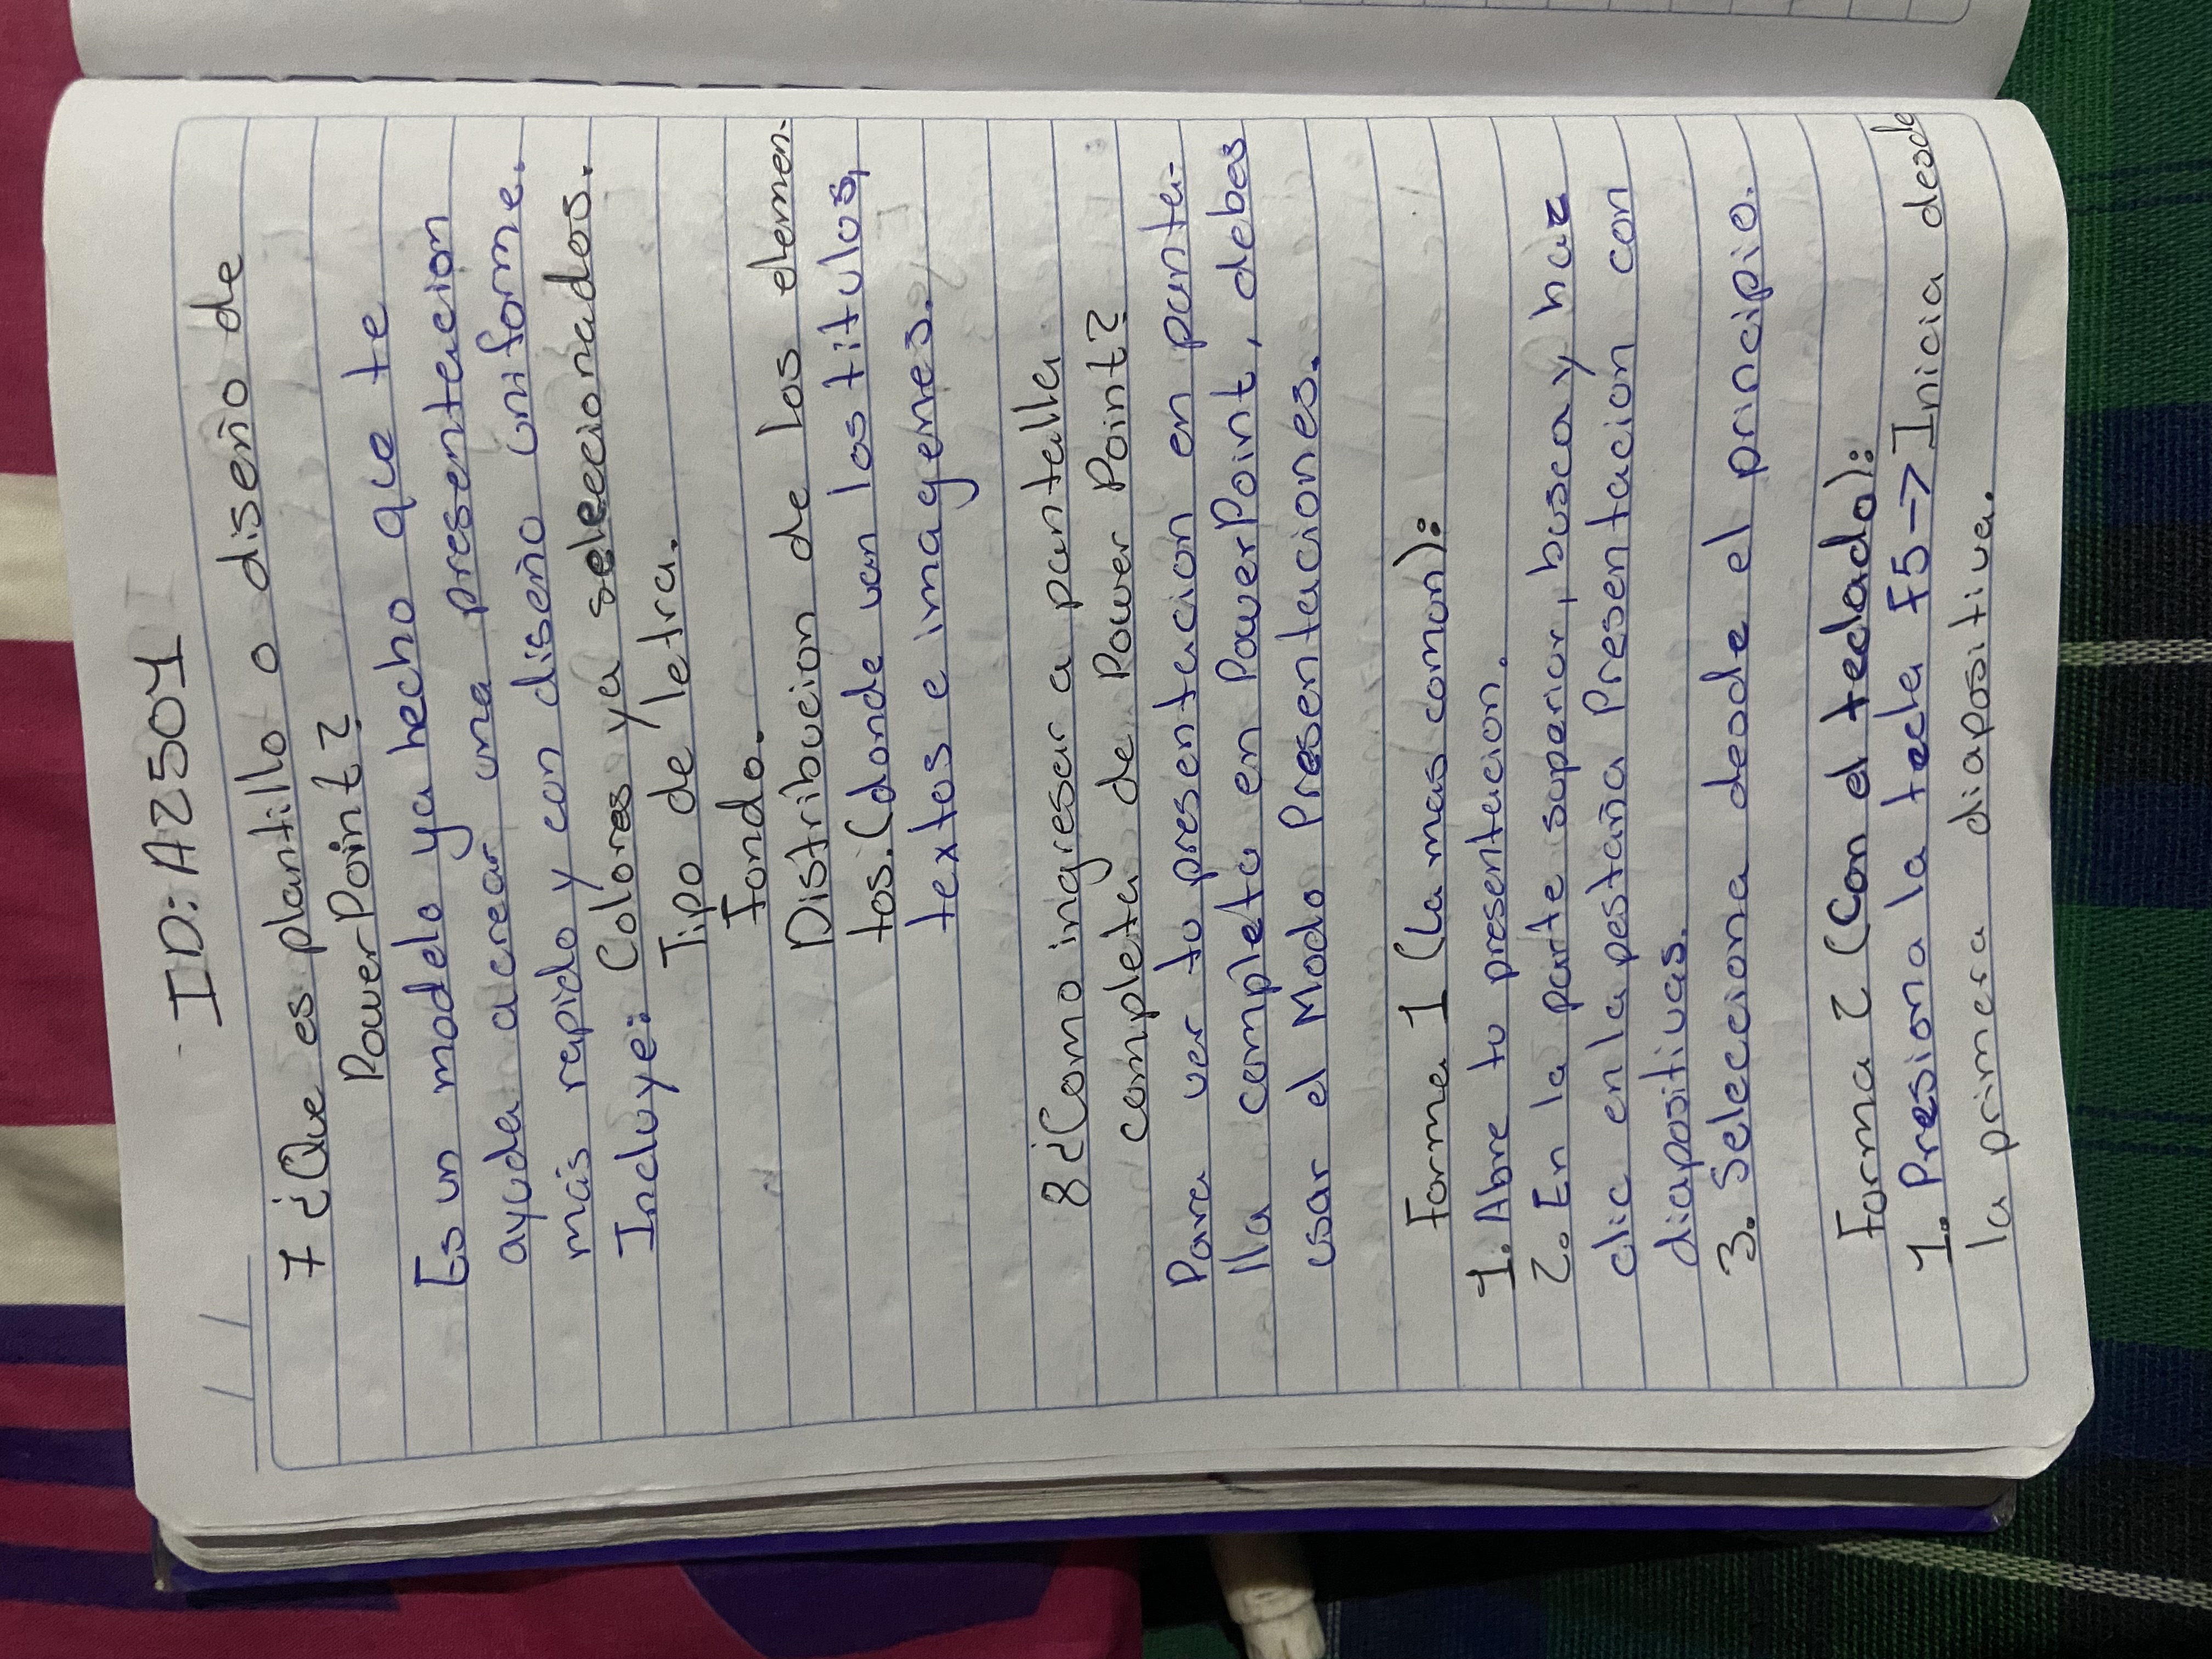 ID: A2504
7 ¿Que es plantillo o diseño de
PowerPoint?
Es un modelo ya hecho que te
ayuda a crear una presentacion
más rapido y con diseño uniforme.
Incluye: Colores ya seleccionados.
Tipo de letra.
Fondo.
Distribucion de los elemen-
tos. (donde van los titulos,
textos e imagenes.
8 ¿Como ingresar a pantalla
completa de Power Point?
Para ver tu presentacion en panta-
lla completa en PowerPoint, debes
usar el Modo Presentaciones.
Forma 1 (La mas comon):
1. Abre tu presentacion.
2. En la parte superior, busca y haz
clic en la pestaña Presentacion con
diapositivas.
3. Selecciona desde el principio.
Forma 2 (Con el teclado):
1. Presiona la tecla F5 -> Inicia desde
la primera diapositiva.